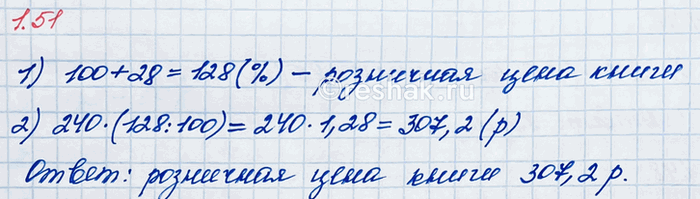 1.51
1) 100+28=128(%) – розничная цена книги
©reshak.ru
2) 240·(128:100)=240·1,28=307,2(р)
Ответ: розничная цена книги 307,2 р.